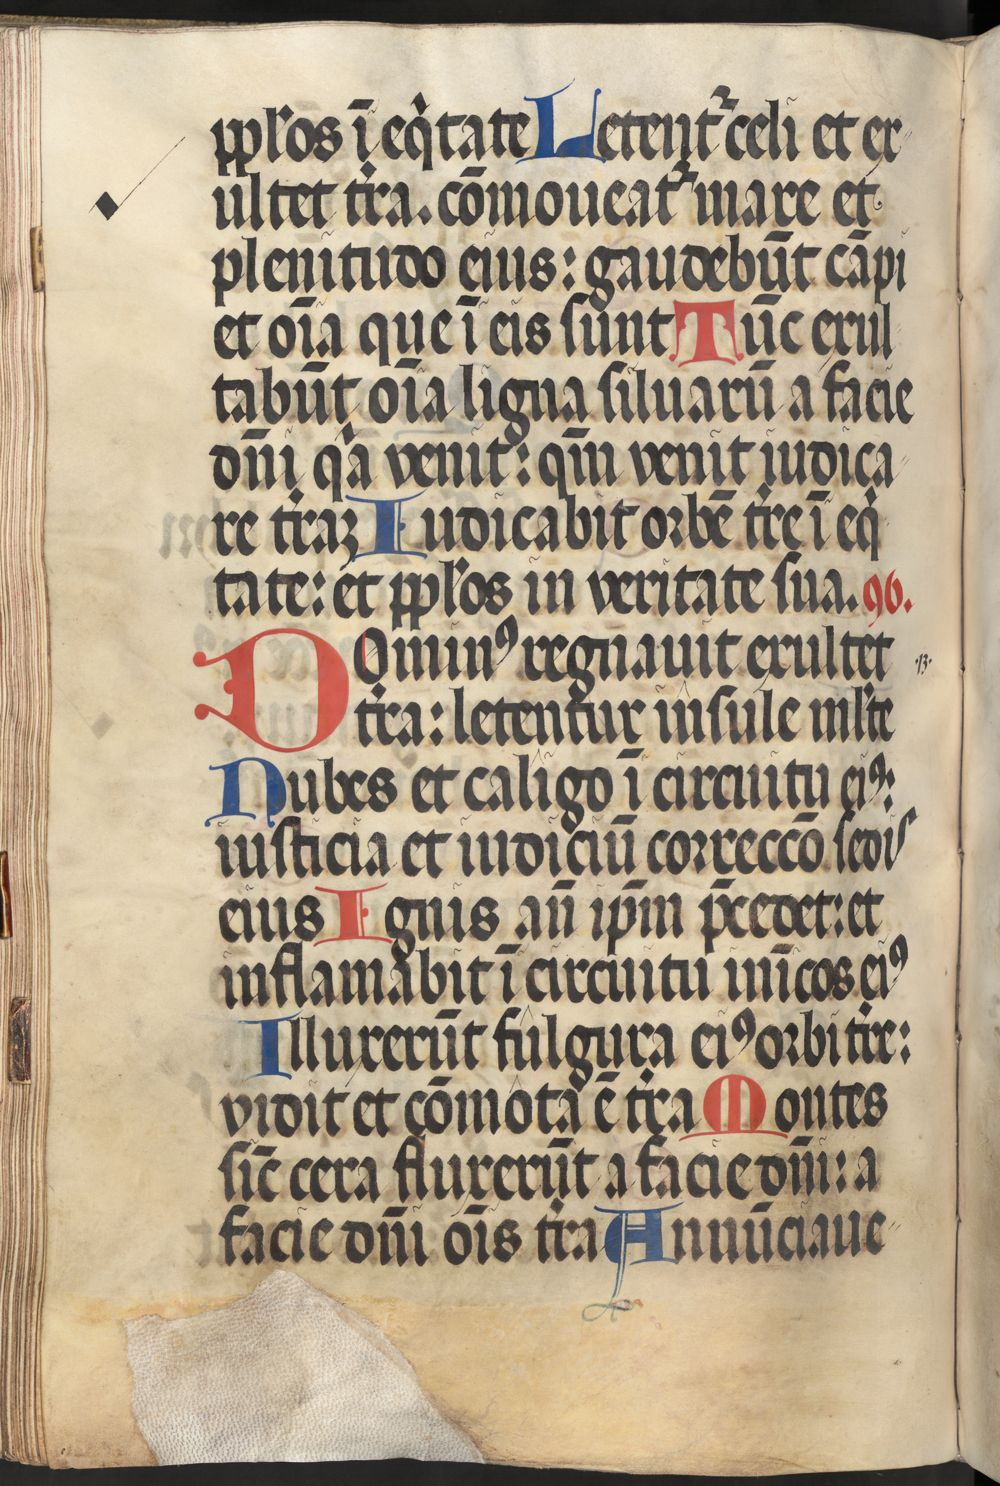 pp̱l'os ī eq̇tate Letent᷑ celi et ex-
ultet tr̄a. cōmoueat᷑ mare et
plenitudo eius: gaudebūt cāpi
et oīa que ī eis sunt Tūc exul-
tabūt oīa ligna siluarū a facie
dn̄i qͣ venit: qm̄ venit iudica-
re tr̄aꝫ Iudicabit orbē tr̄e ī eq̇-
tate: et ppl'os in veritate sua. 96.
DOminꝰ regnauit exultet
tr̄a: letentur insule ml'te
Nubes et caligo ī circuitu eiꝰ:
iusticia et iudiciū correccō sedis
eius Ignis an̄ ip̄m p̄cedet: et
inflamābit ī circuitu inīcos eiꝰ
Illuxerūt fulgura eiꝰ orbi tr̄e:
vidit et cōmota ē tr̄a Montes
sic̄ cera fluxerūt a facie dn̄i: a
facie dn̄i oīs tr̄a Annūciaue-